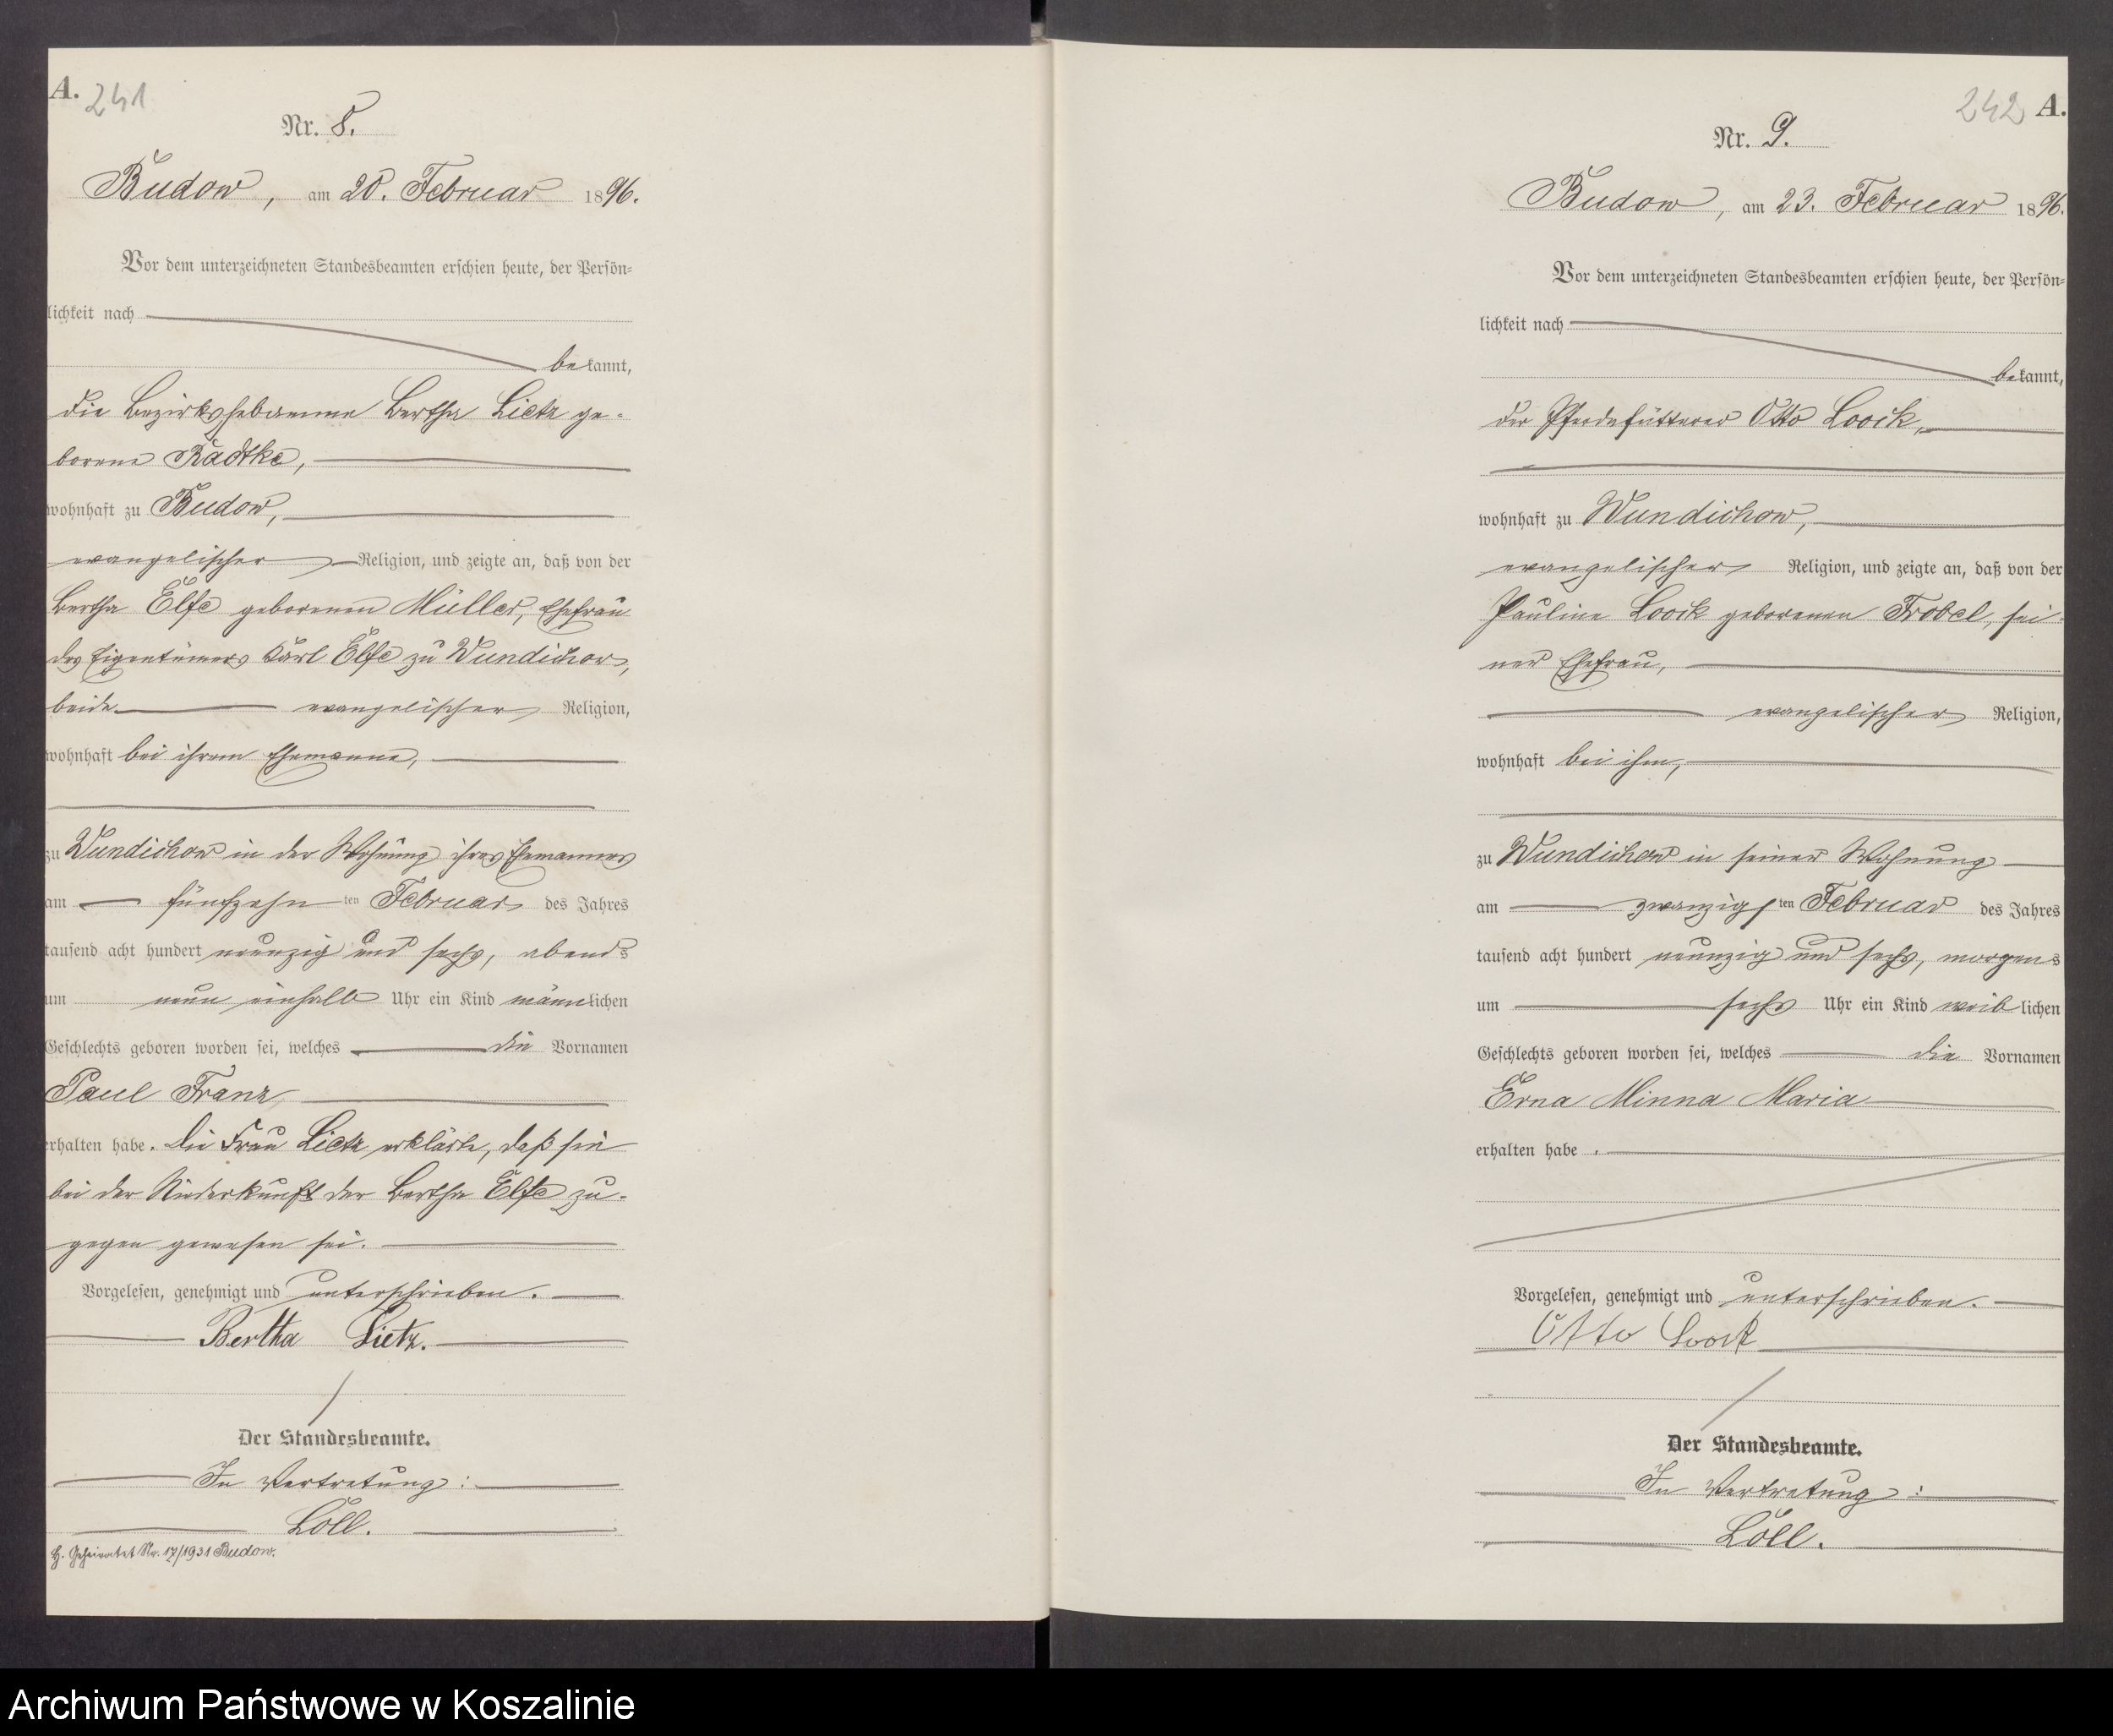 A.
241
Nr. 8.
Budow, am 20. Februar 1896.
Vor dem unterzeichneten Standesbeamten erschien heute, der Persön-
lichkeit nach
bekannt,
die Bezirkshebamme Bertha Lietz ge-
borene Radtke,
wohnhaft zu Budow,
evangelischer Religion, und zeigte an, daß von der
Bertha Elfe geborenen Müller, Ehefrau
des Eigentümers Karl Elfe zu Wundichow,
beide evangelischer Religion,
wohnhaft bei ihrem Ehemanne,
zu Wundichow in der Wohnung ihres Ehemannes
am fünfzehn ten Februar des Jahres
tausend acht hundert neunzig und sechs, abends
um neun einhalb Uhr ein Kind männlichen
Geschlechts geboren worden sei, welches die Vornamen
Paul Franz
erhalten habe. Die Frau Lietz erklärte, daß sie
bei der Niederkunft der Bertha Elfe zu-
gegen gewesen sei.
Vorgelesen, genehmigt und unterschrieben.
Bertha Lietz.
Der Standesbeamte.
In Vertretung:
Löll.
H. Geheiratet Nr. 17/1931 Budow.
242
A.
Nr. 9.
Budow, am 23. Februar 1896.
Vor dem unterzeichneten Standesbeamten erschien heute, der Persön-
lichkeit nach
bekannt,
der Pferdefütterer Otto Loock,
wohnhaft zu Wundichow,
evangelischer Religion, und zeigte an, daß von der
Pauline Loock geborenen Frobel, sei-
ner Ehefrau,
evangelischer Religion,
wohnhaft bei ihm,
zu Wundichow in seiner Wohnung
am zwanzigs ten Februar des Jahres
tausend acht hundert neunzig und sechs, morgens
um sechs Uhr ein Kind weiblichen
Geschlechts geboren worden sei, welches die Vornamen
Erna Minna Maria
erhalten habe.
Vorgelesen, genehmigt und unterschrieben.
Otto Loock
Der Standesbeamte.
In Vertretung:
Löll.
Archiwum Państwowe w Koszalinie